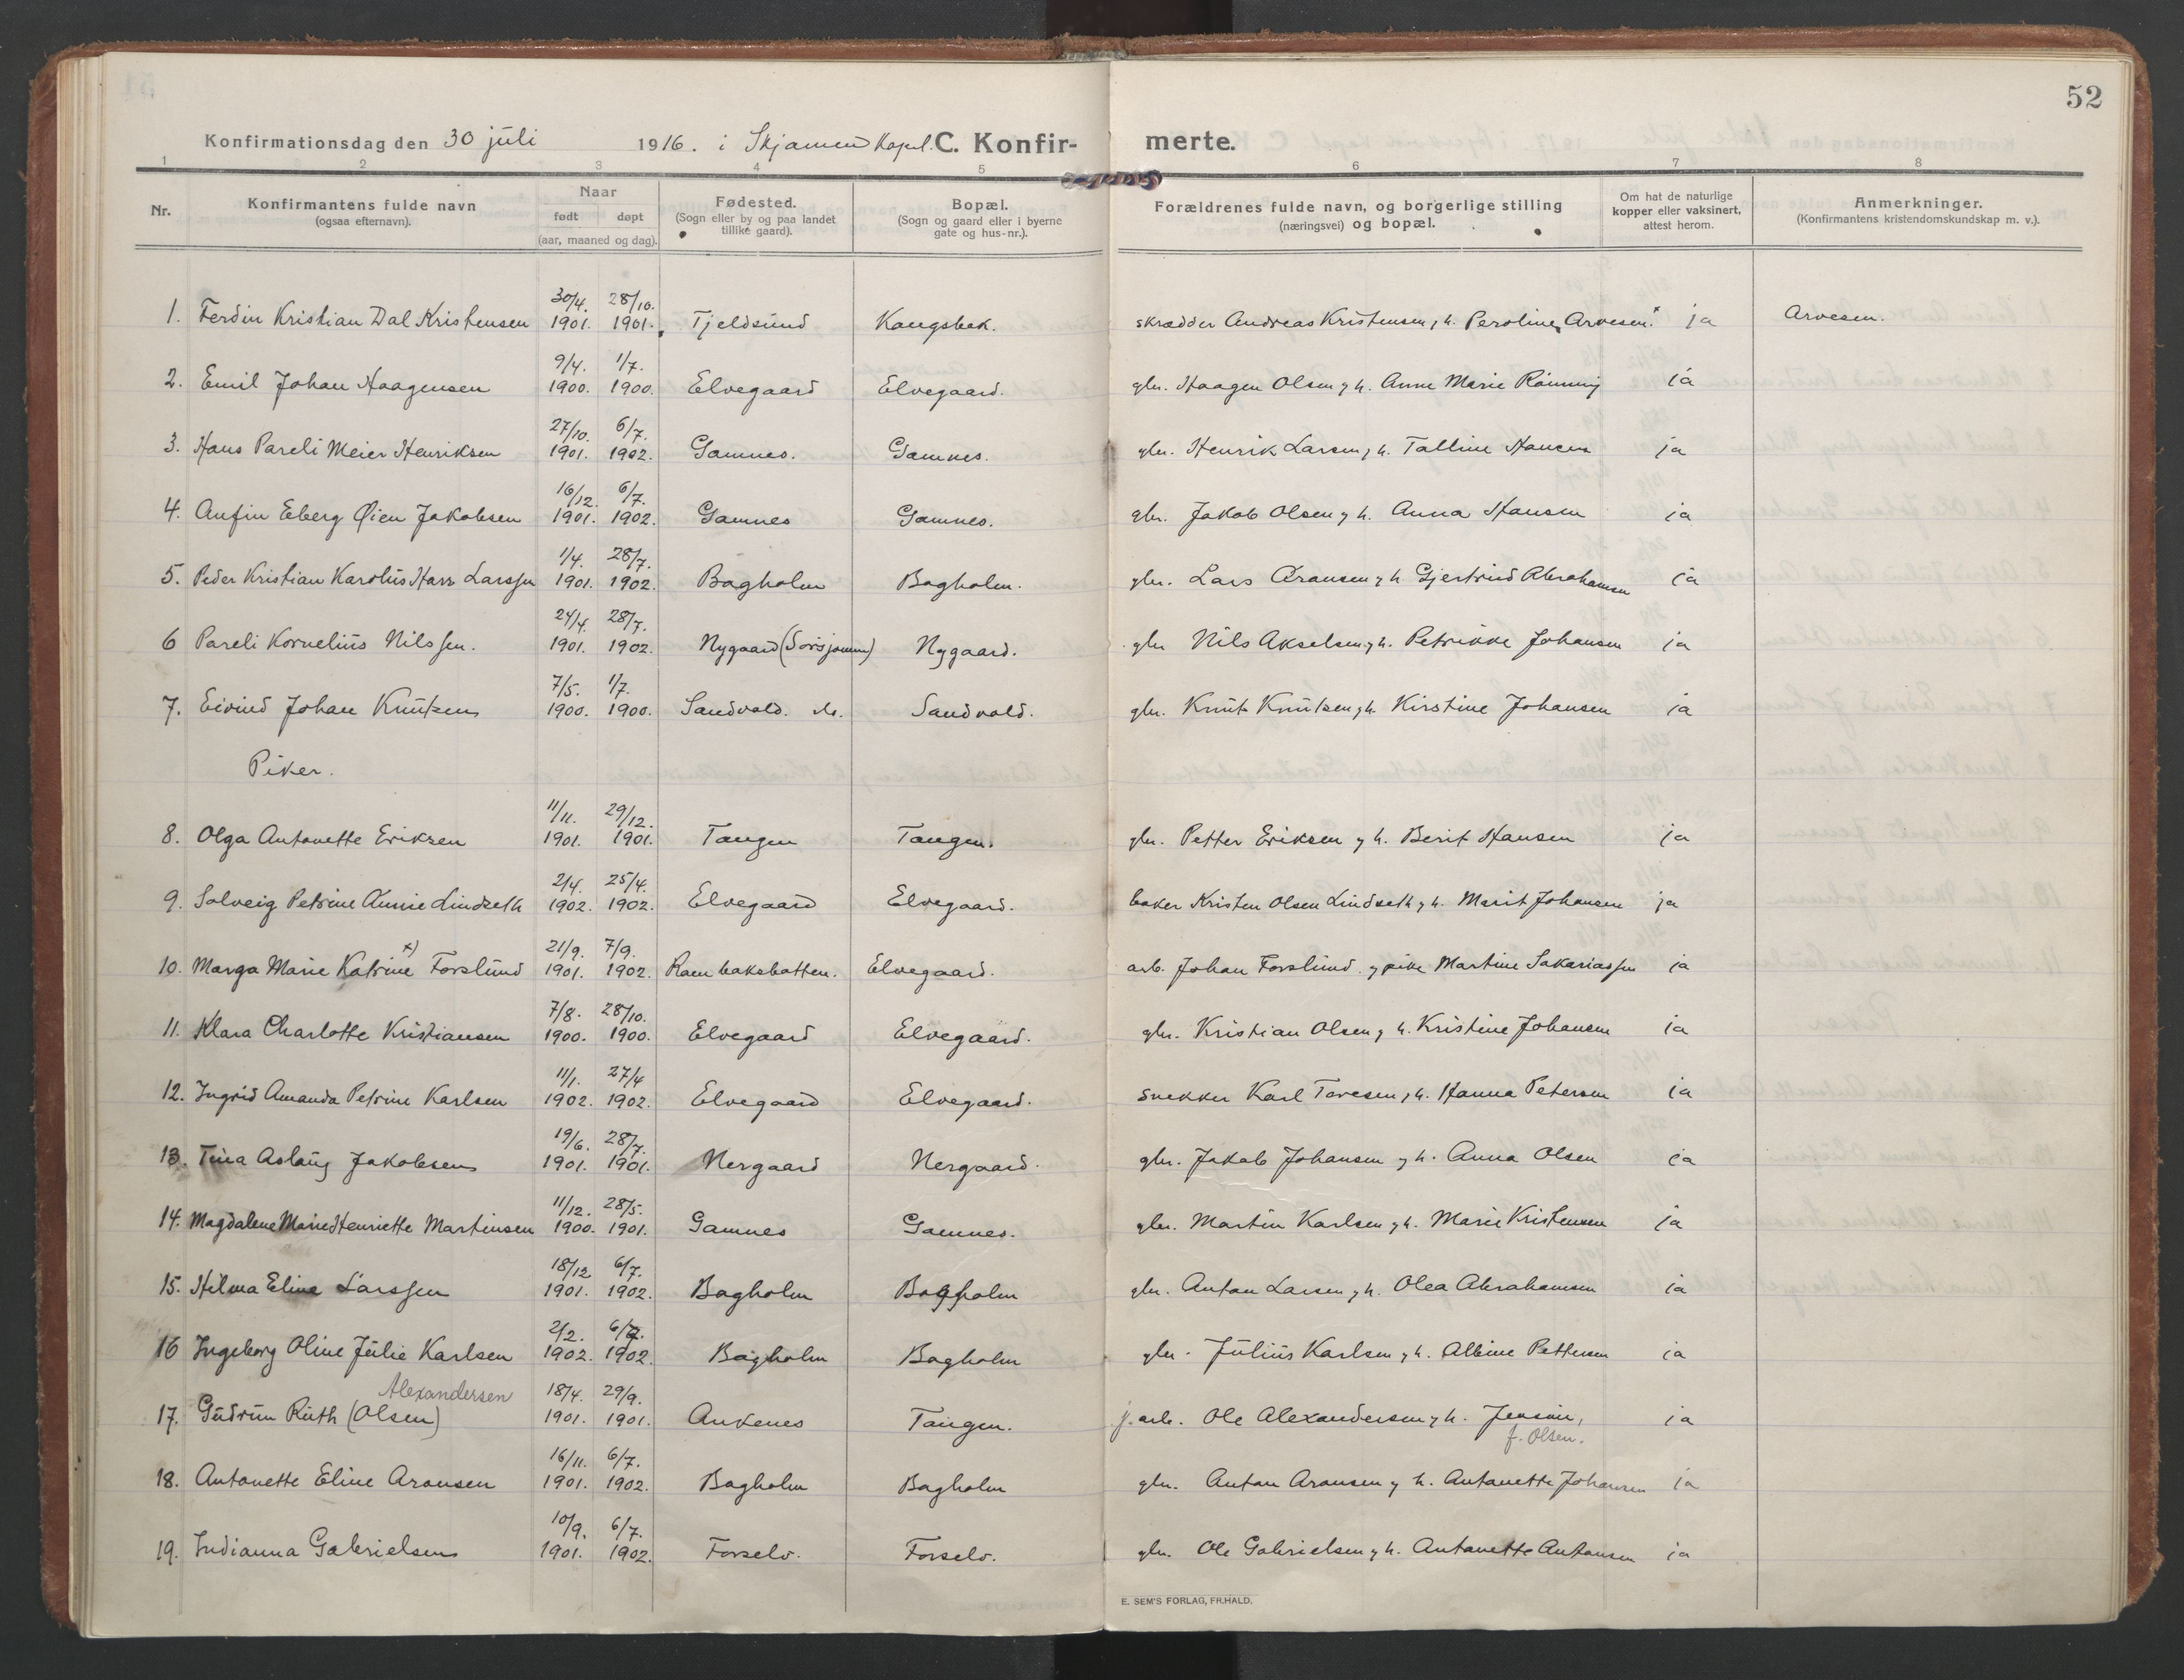 52
Konfirmationsdag den 30 juli 1916. i Skjomen Kapel. C. Konfirmerte.
1 2 3 4 5 6 7 8
Nr. Konfirmantens fulde navn (ogsaa efternavn). Naar født døpt (aar, maaned og dag). Fødested. (Sogn eller by og paa landet tillike gaard). Bopæl. (Sogn og gaard eller i byerne gate og hus-nr.). Forældrenes fulde navn, og borgerlige stilling (næringsvei) og bopæl. Om hat de naturlige kopper eller vaksinert, attest herom. Anmerkninger. (Konfirmantens kristendomskundskap m. v.).
1. Ferdin Kristian Dal Kristensen 30/4. 1901. 28/10. 1901. Tjeldsund Kongsbak. skrædder Andreas Kristensen, h. Peroline Arvesen. ja Arvesen.
2. Emil Johan Haagensen 9/4. 1900. 1/7. 1900. Elvegaard Elvegaard. gbr. Haagen Olsen og h. Anne Marie Rönning ja
3. Hans Pareli Meier Henriksen 27/10. 1901. 6/7. 1902. Gamnes. Gamnes. gbr. Henrik Larsen, h. Talline Hansen ja
4. Anfin Eberg Øien Jakobsen 16/12. 1901. 6/7. 1902. Gamnes Gamnes. gbr. Jakob Olsen og h. Anna Hansen ja
5. Peder Kristian Karolius Harr Larssen 1/4. 1901. 28/7. 1902. Bagholm Bagholm. gbr. Lars Aronsen og h. Gjertrud Abrahamsen ja
6 Pareli Kornelius Nilssen. 24/4. 1901. 28/7. 1902. Nygaard (Sörsjomen) Nygaard. gbr Nils Akselsen og h. Petrikke Johansen ja
7. Eivind Johan Knutsen 7/5. 1900. 1/7. 1900. Sandvold. do. Sandvold. gbr. Knut Knutsen og h. Kirstine Johansen ja
Piker.
8. Olga Antonette Eriksen 11/11. 1901. 29/12. 1901. Tangen Tangen. gbr. Petter Eriksen og h. Berit Hansen ja
9. Solveig Petrine Annie Lindseth 2/4. 1902. 25/4. 1902. Elvegaard Elvegaard. baker Kristen Olsen Lindseth og h. Marit Johansen ja
10. Marga Marie Katrine x) Forslund 21/9. 1901. 7/9. 1902. Rombaksbotten. Elvegaard. arb. Johan Forslund og pike Martine Sakariassen ja
11. Klara Charlotte Kristiansen 7/8. 1900. 28/10. 1900. Elvegaard Elvegaard. gbr. Kristian Olsen, h. Kristine Johansen ja
12. Ingrid Amanda Petrine Karlsen 11/1. 1902. 27/4 1902. Elvegaard Elvegaard. snekker Karl Toresen, h. Hanna Petersen ja
13. Tina Aslaug Jakobsen 19/6. 1901. 28/7. 1901. Nergaard Nergaard. gbr. Jakob Johansen og h. Anna Olsen ja
14. Magdalene Marie Henriette Martinsen 11/12. 1900. 28/5. 1901. Gamnes Gamnes. gbr. Martin Karlsen og h. Marie Kristensen ja
15. Hilma Elina Larssen 18/12 1901. 6/7. 1902. Bagholm Bagholm gbr. Anton Larsen og h. Olea Abrahamsen ja
16 Ingeborg Oline Julie Karlsen 2/2. 1902. 6/7. 1902. Bagholm Bagholm gbr. Julius Karlsen og h. Albine Pettersen ja
Alexandersen
17. Gudrun Ruth (Olsen) 18/4. 1901. 29/9. 1901. Ankenes Tangen. j. arb. Ole Alexandersen og h. Jensine, f. Olsen. ja
18. Antonette Eline Aronsen 16/11. 1901. 6/7. 1902. Bagholm Bagholm gbr. Anton Aronsen og h. Antonette Johansen ja
19. Indianna Gabrielsen 10/9. 1901. 6/7. 1902. Forselv. Forselv. gbr. Ole Gabrielsen og h. Antonette Antonsen ja
E. SEM'S FORLAG, FR.HALD.